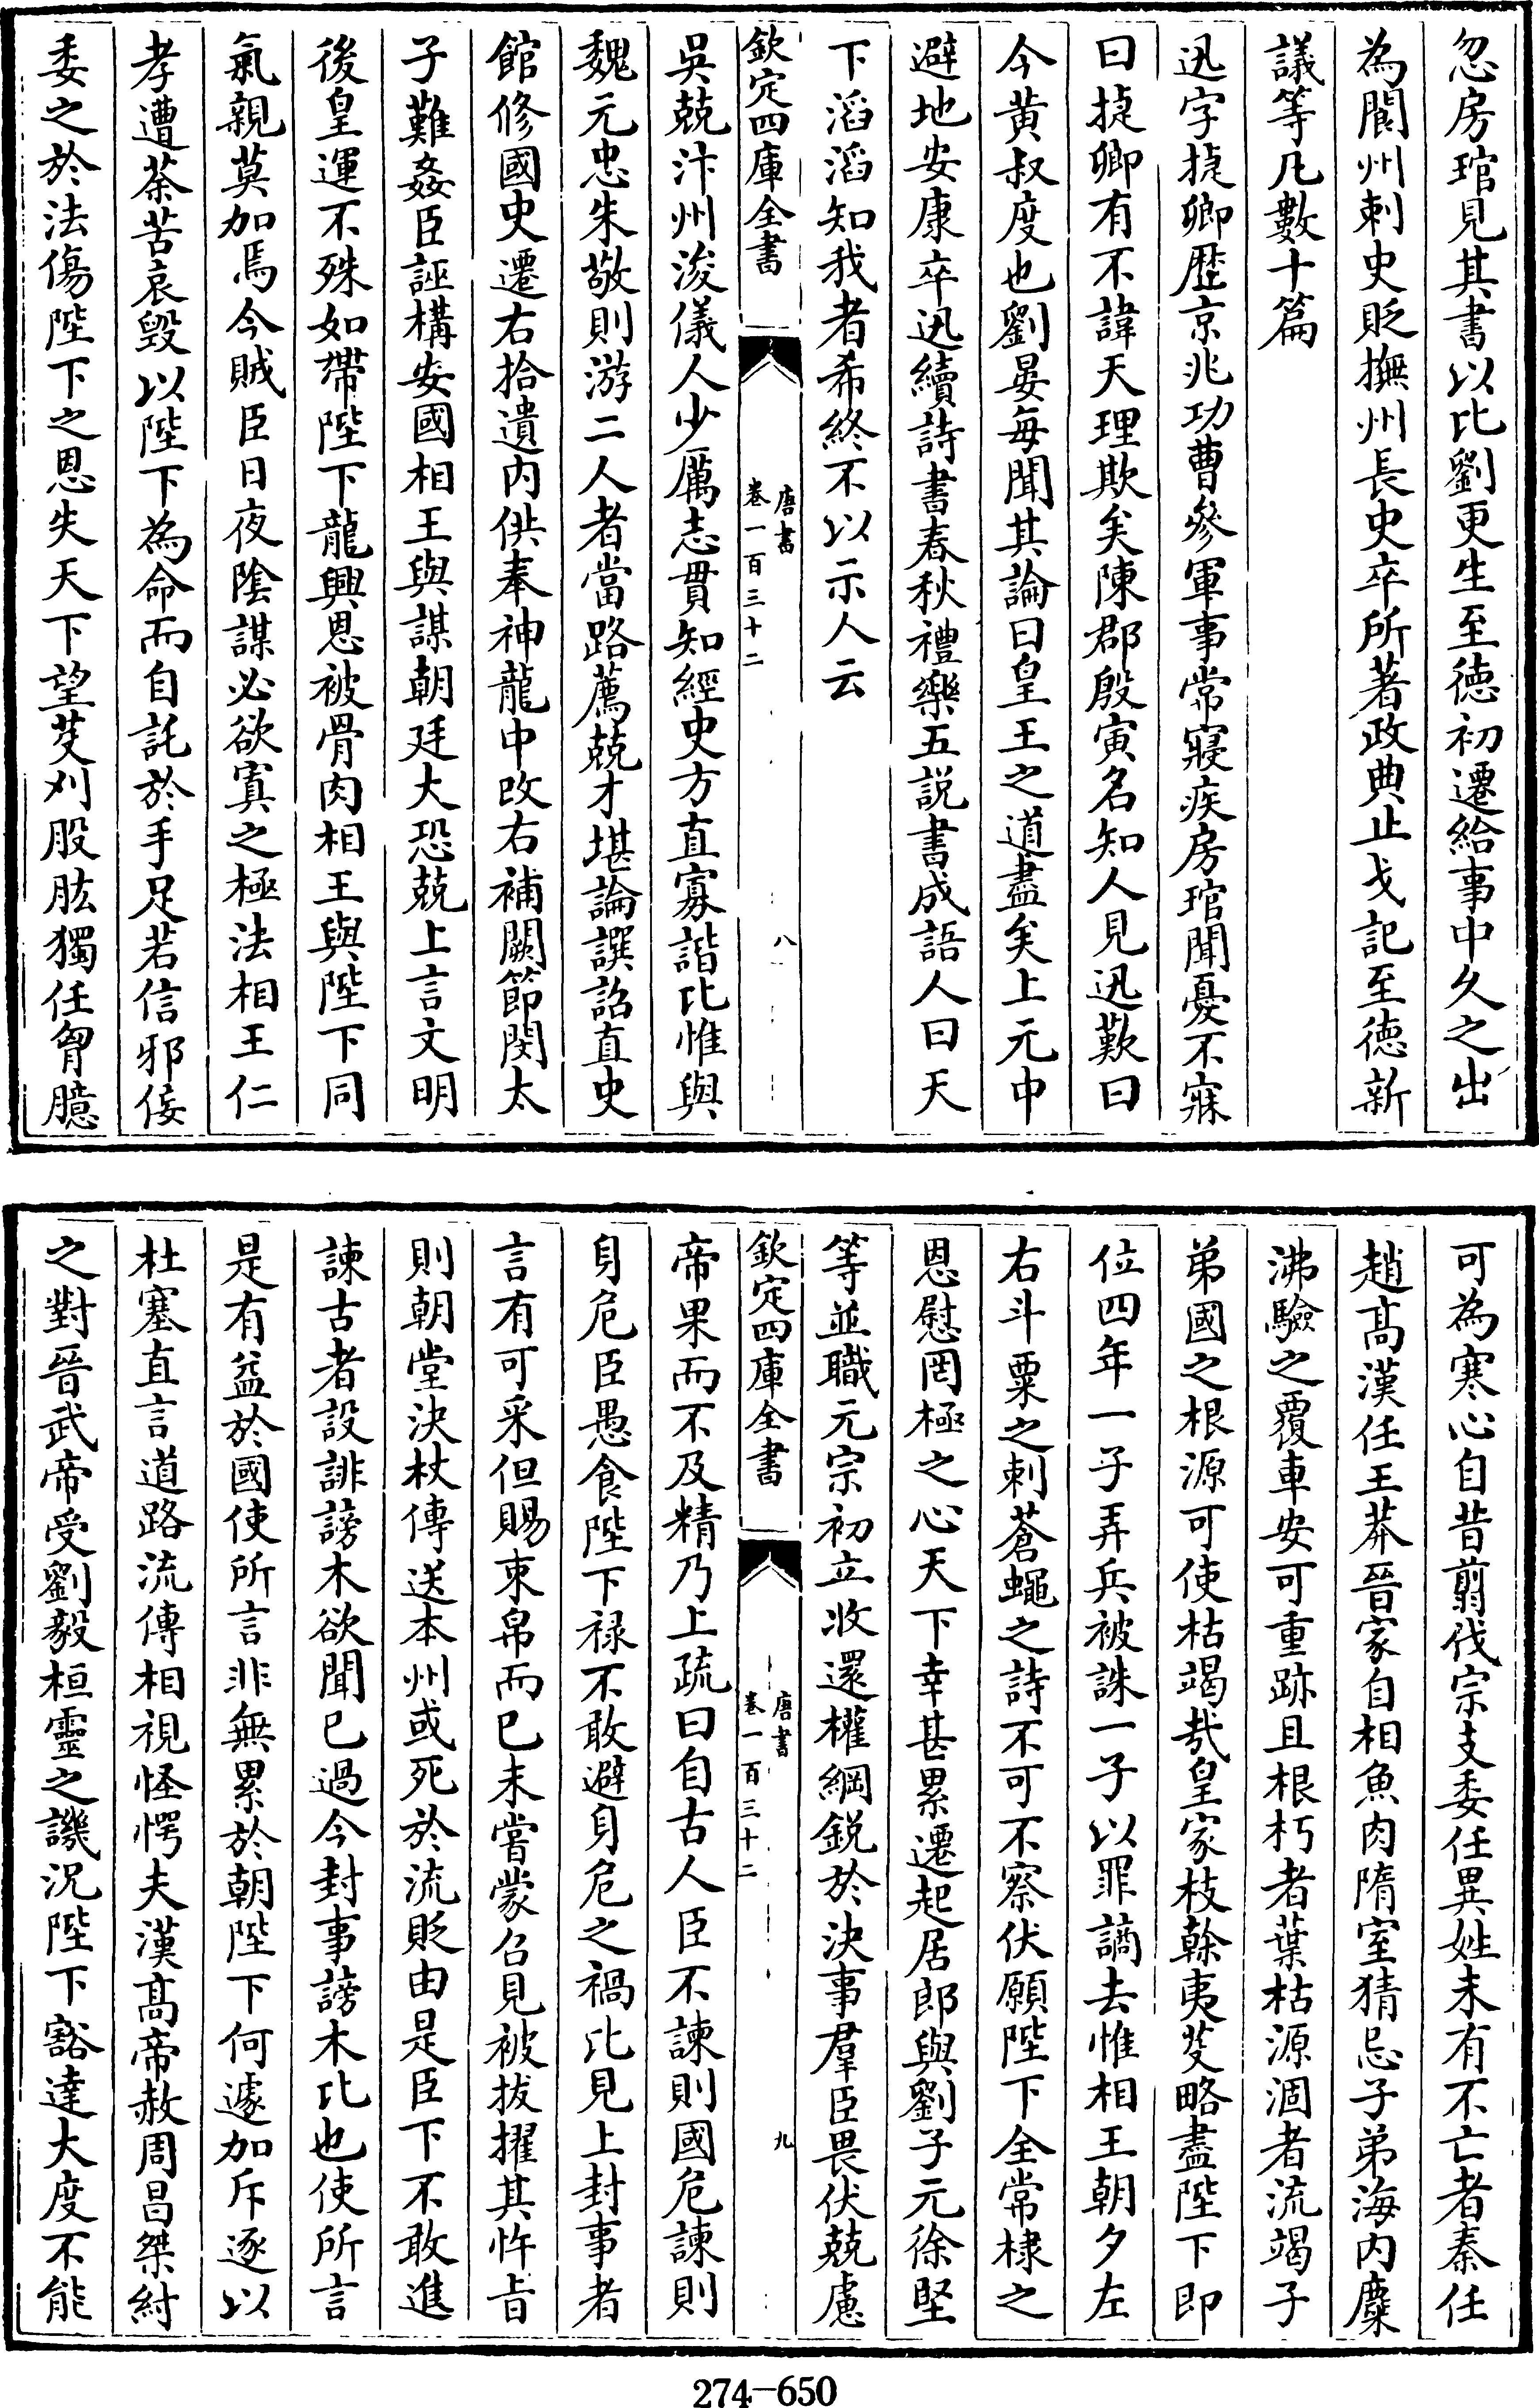 忽房琯見其書以比劉更生至德初遷給事中久之出
為閬州刺史貶撫州長史卒所著政典止戈記至德新
議等凡數十篇
迅字捷卿歴京兆功曹參軍事常寢疾房琯聞憂不寐
曰捷卿有不諱天理欺矣陳郡殷寅名知人見迅歎曰
今黃叔度也劉晏每聞其論曰皇王之道盡矣上元中
避地安康卒迅續詩書春秋禮樂五説書成語人曰天
下滔滔知我者希終不以示人云
欽定四庫全書
唐書
卷一百三十二
八
吳兢汴州浚儀人少厲志貫知經史方直寡諧比惟與
魏元忠朱敬則游二人者當路薦兢才堪論譔詔直史
館修國史遷右拾遺内供奉神龍中改右補闕節閔太
子難姦臣誣構安國相王與謀朝廷大恐兢上言文明
後皇運不殊如帶陛下龍興恩被骨肉相王與陛下同
氣親莫加焉今賊臣日夜隂謀必欲寘之極法相王仁
孝遭荼苦哀毀以陛下為命而自託於手足若信邪佞
委之於法傷陛下之恩失天下望芟刈股肱獨任胷臆
可為寒心自昔翦伐宗支委任異姓未有不亡者秦任
趙髙漢任王莽晉家自相魚肉隋室猜忌子弟海内麋
沸驗之覆車安可重跡且根朽者葉枯源涸者流竭子
弟國之根源可使枯竭㢤皇家枝幹夷芟略盡陛下即
位四年一子弄兵被誅一子以罪謫去惟相王朝夕左
右斗粟之刺蒼蠅之詩不可不察伏願陛下全常棣之
恩慰罔極之心天下幸甚累遷起居郎與劉子元徐堅
等並職元宗初立收還權綱鋭於決事羣臣畏伏兢慮
欽定四庫全書
唐書
卷一百三十二
九
帝果而不及精乃上疏曰自古人臣不諫則國危諫則
身危臣愚食陛下禄不敢避身危之禍比見上封事者
言有可采但賜束帛而已未嘗蒙召見被拔擢其忤㫖
則朝堂決杖傳送本州或死於流貶由是臣下不敢進
諫古者設誹謗木欲聞已過今封事謗木比也使所言
是有益於國使所言非無累於朝陛下何遽加斥逐以
杜塞直言道路流傳相視怪愕夫漢髙帝赦周昌桀紂
之對晉武帝受劉毅桓靈之譏況陛下豁達大度不能
274-650